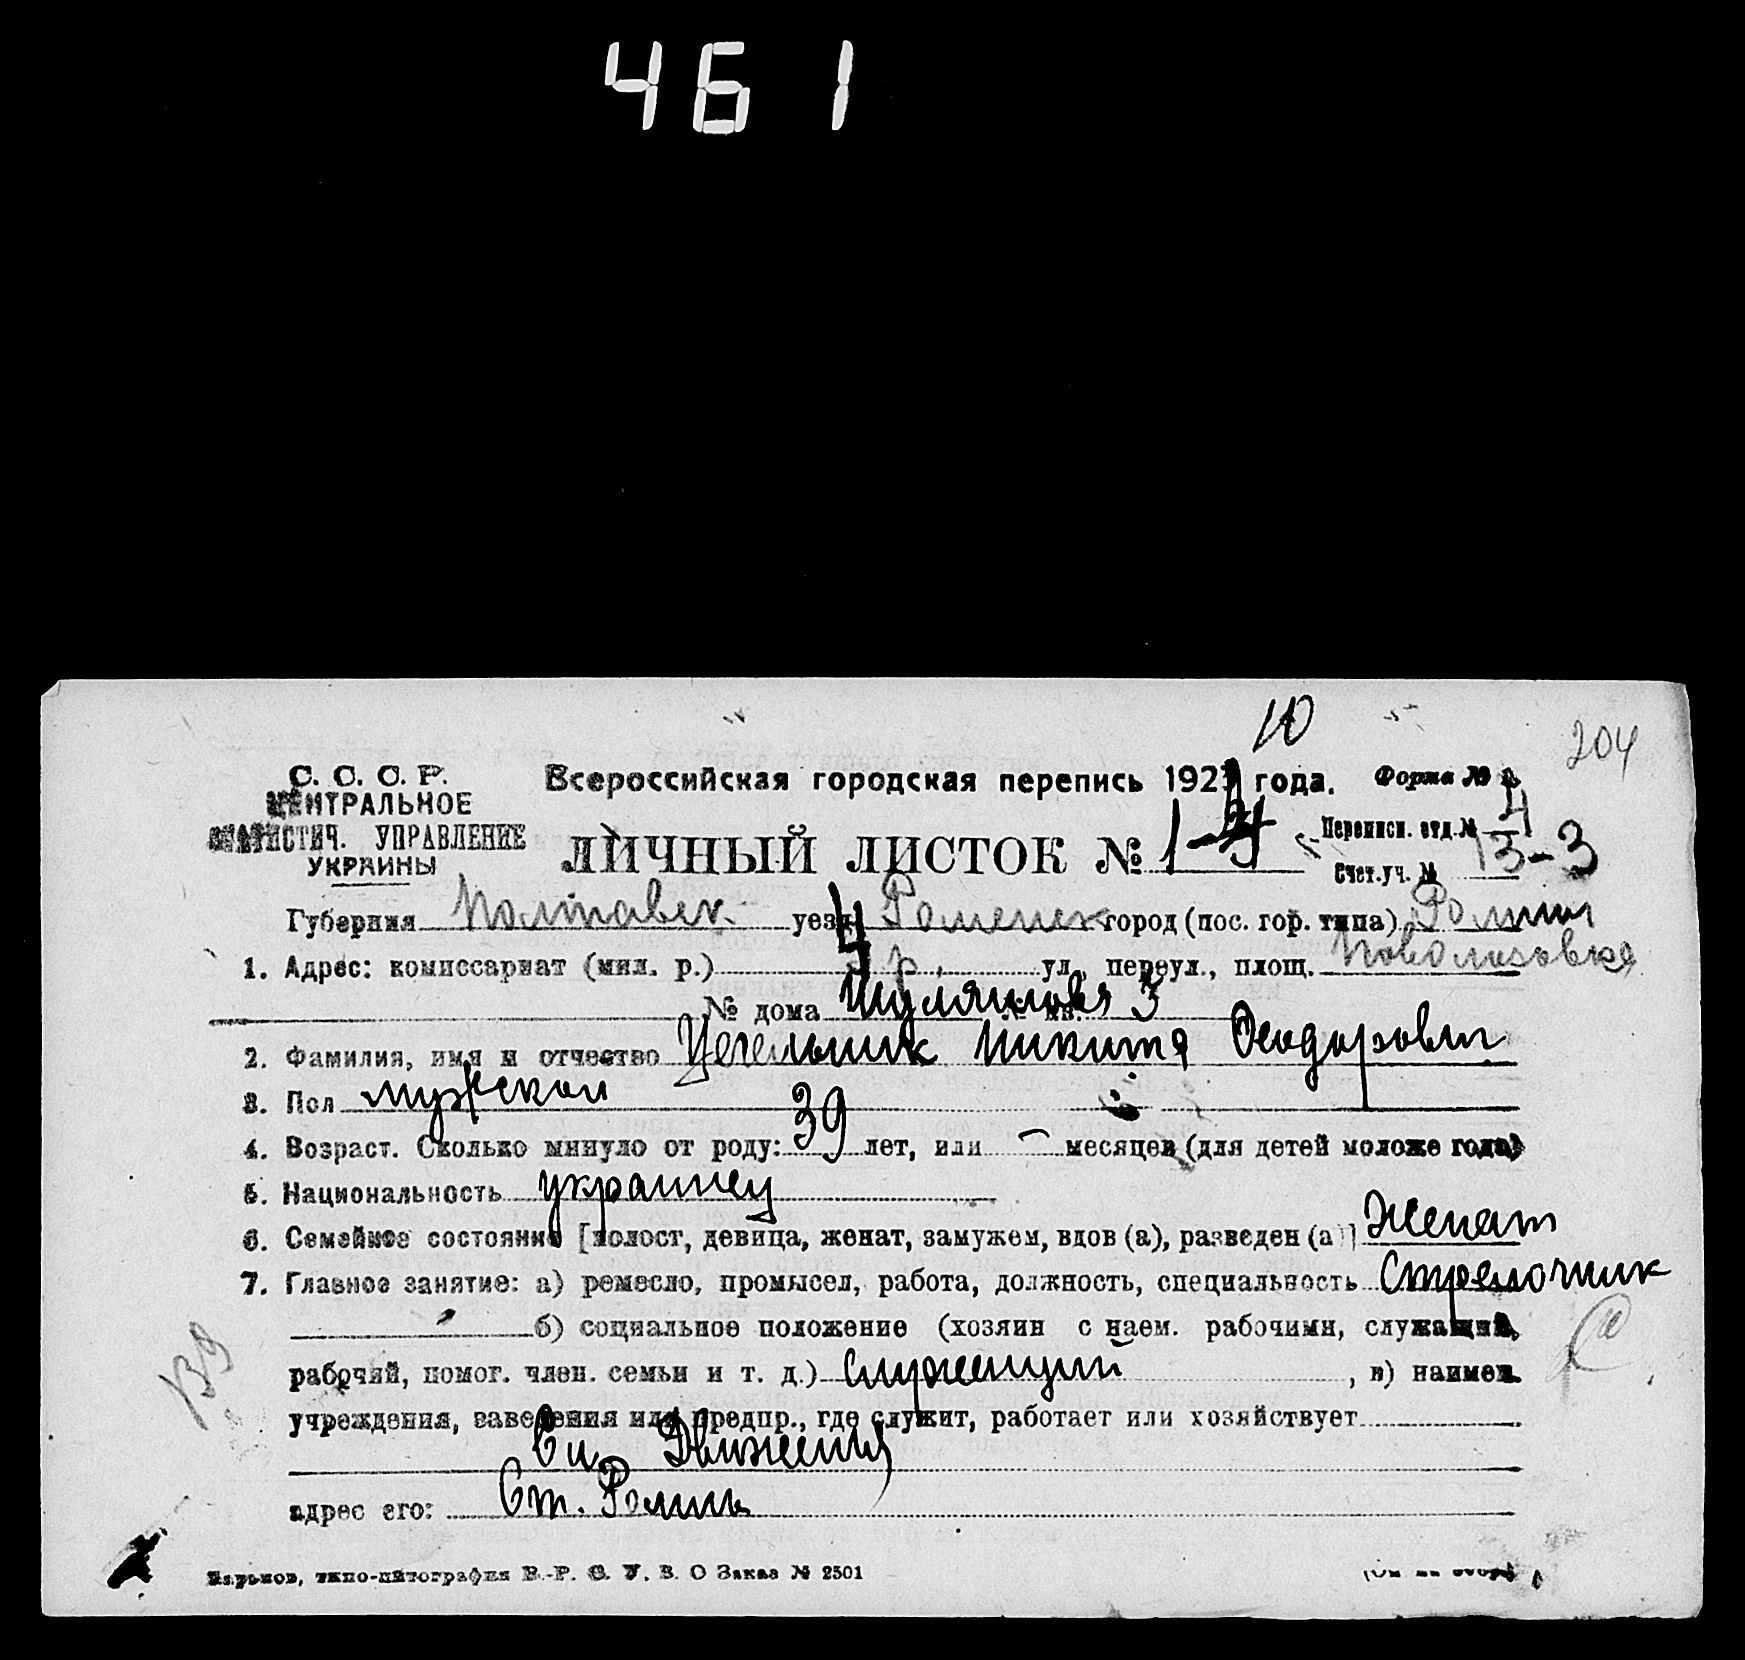 461
10
204
С. С. С. Р.
ЦЕНТРАЛЬНОЕ
СТАТИСТИЧ. УПРАВЛЕНИЕ
УКРАИНЫ
Всероссийская городская перепись 1923 года.
Форма №
ЛИЧНЫЙ ЛИСТОК № 1-
Переписн. отд. № 4
Счет. уч. № 13-3
Губерния Полтавск. уезд Роменск город (пос. гор. типа) Ромны
1. Адрес: комиссариат (мил. р.) 4 р. ул., переул., площ.
№ дома 3
2. Фамилия, имя и отчество Цегельник Никита Феодорович
3. Пол мужской
4. Возраст. Сколько минуло от роду: 39 лет, или — месяцев (для детей моложе года)
5. Национальность украинец
6. Семейное состояние [холост, девица, женат, замужем, вдов (а), разведен (а)] Женат
7. Главное занятие: а) ремесло, промысел, работа, должность, специальность Стрелочник
б) социальное положение (хозяин с наем. рабочими, служащий,
рабочий, помог. член. семьи и т. д.) служащий , в) наимен.
139
учреждения, заведения или предпр., где служит, работает или хозяйствует
Сл. Движения
адрес его: Ст. Ромны
Харьков, типо-литография В.-Р. С. У. В. О Заказ № 2501